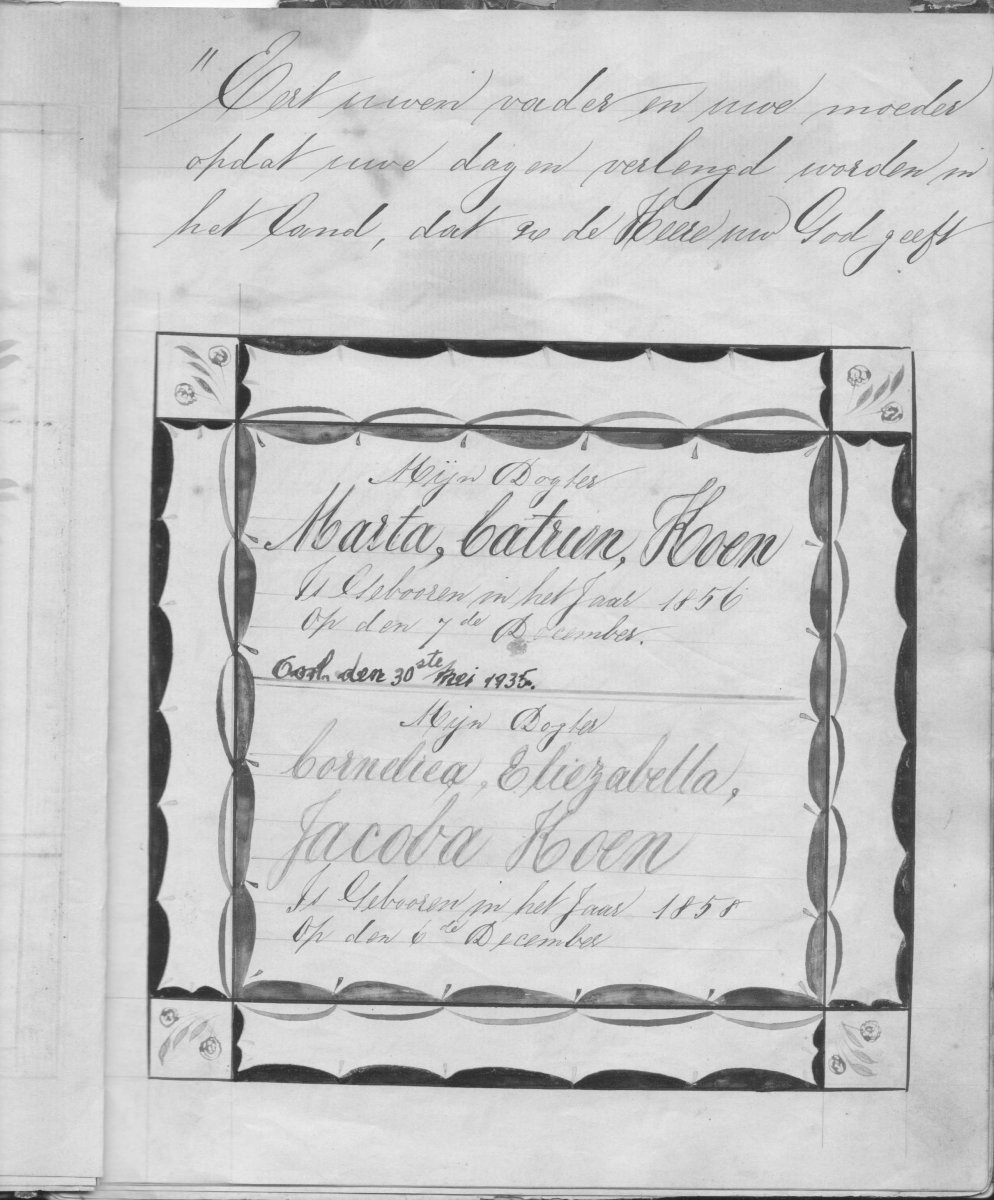 "Eert uwen vader en uwe moeder
opdat uwe dagen verlengd worden in
het land, dat u de Heere uw God geeft
Mijn Dogter
Marta, Catrien, Koen
Is Gebooren in het Jaar 1856
Op den 7de December.
Oorl. den 30ste Mei 1935.
Mijn Dogter
Corneliea, Eliezabella,
Jacoba Koen
Is Gebooren in het Jaar 1858
Op den 6de December